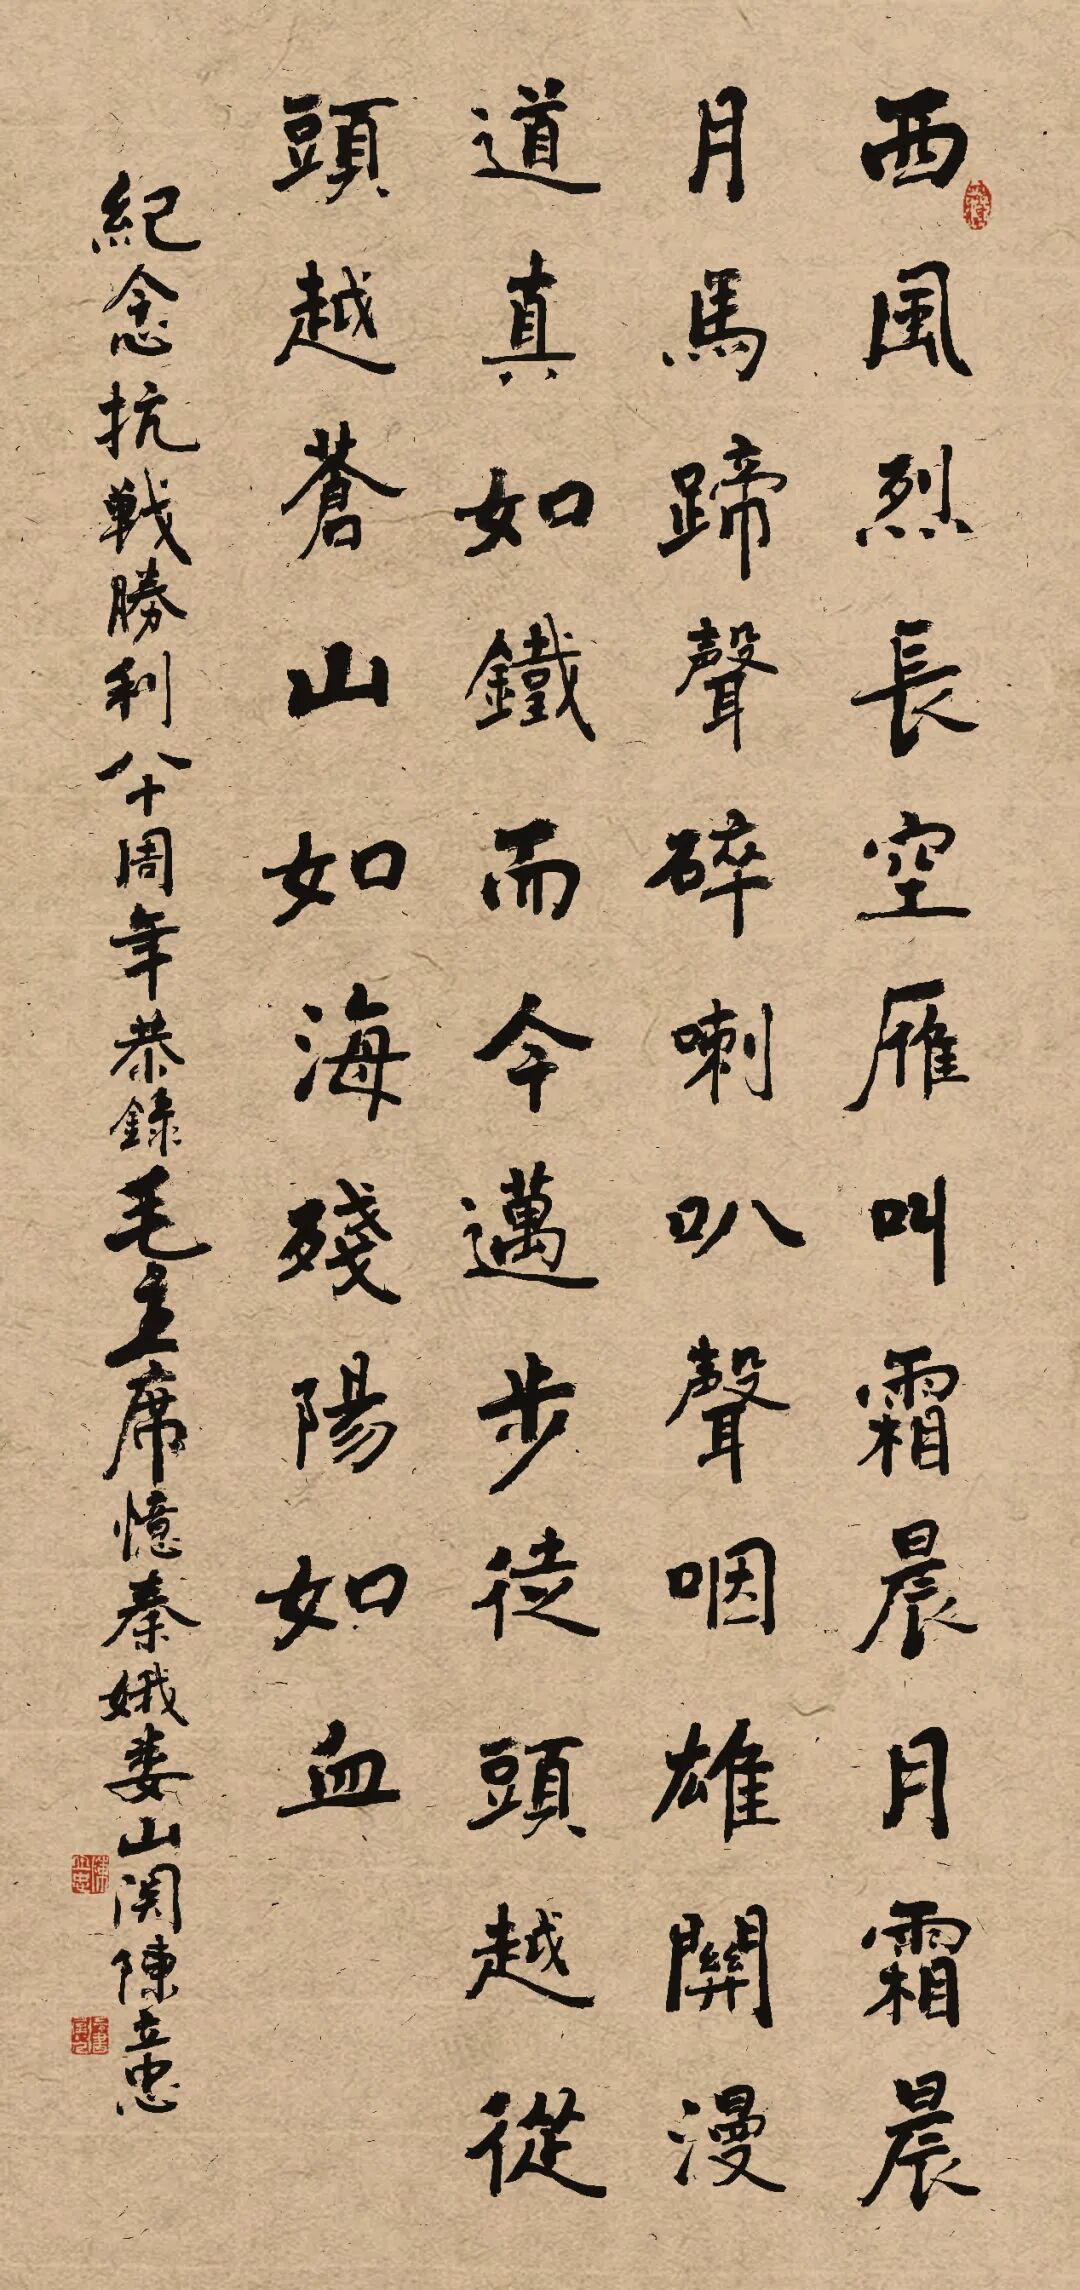 西風烈長空雁叫霜晨月霜晨
月馬蹄聲碎喇叭聲咽雄關漫
道真如鐵而今邁步從頭越從
頭越蒼山如海殘陽如血
紀念抗戰勝利八十周年恭錄毛主席憶秦娥婁山関陳立忠